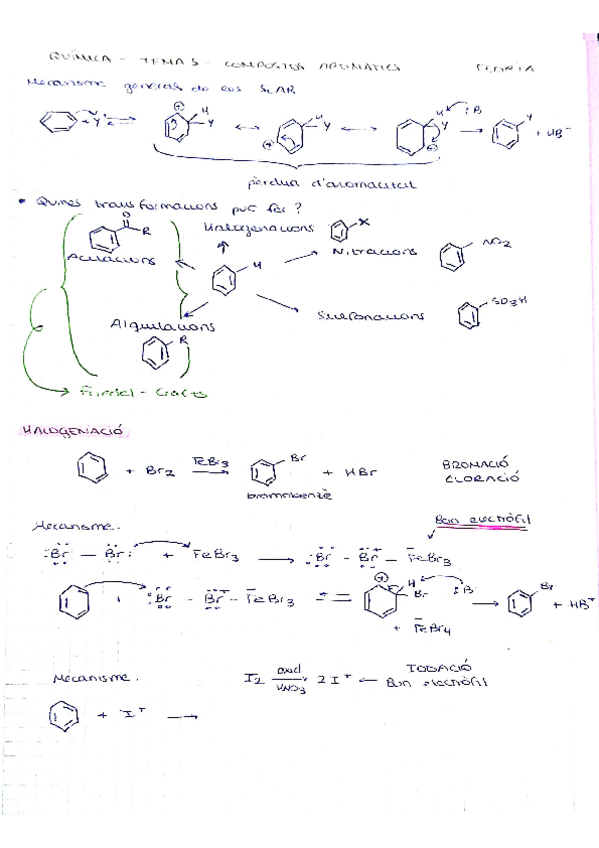 QUÍMICA - TEMA 5 - COMPOSTOS AROMÀTICS TEORIA
Mecanisme general de les SEAR
+ Y⁺ ⇌ H Y ↔ H Y ↔ H Y :B → Y + HB⁻
pèrdua d'aromaticitat
• Quines transformacions puc fer?
Halogenacions X
O R
Acilacions H Nitracions NO2
Alquilacions R Sulfonacions SO3H
Friedel - Crafts
HALOGENACIÓ
+ Br2 FeBr3 → Br + HBr BROMACIÓ
CLORACIÓ
bromobenzè
Mecanisme. Bon electròfil
:Br - Br: + FeBr3 → :Br - Br⁺ - FeBr3
+ :Br - Br⁺ - FeBr3 ⇌ H Br :B → Br + HB⁺
+ FeBr4
Mecanisme. I2 oxid HNO3 2 I⁺ ← Bon electròfil IODACIÓ
+ I⁺ →